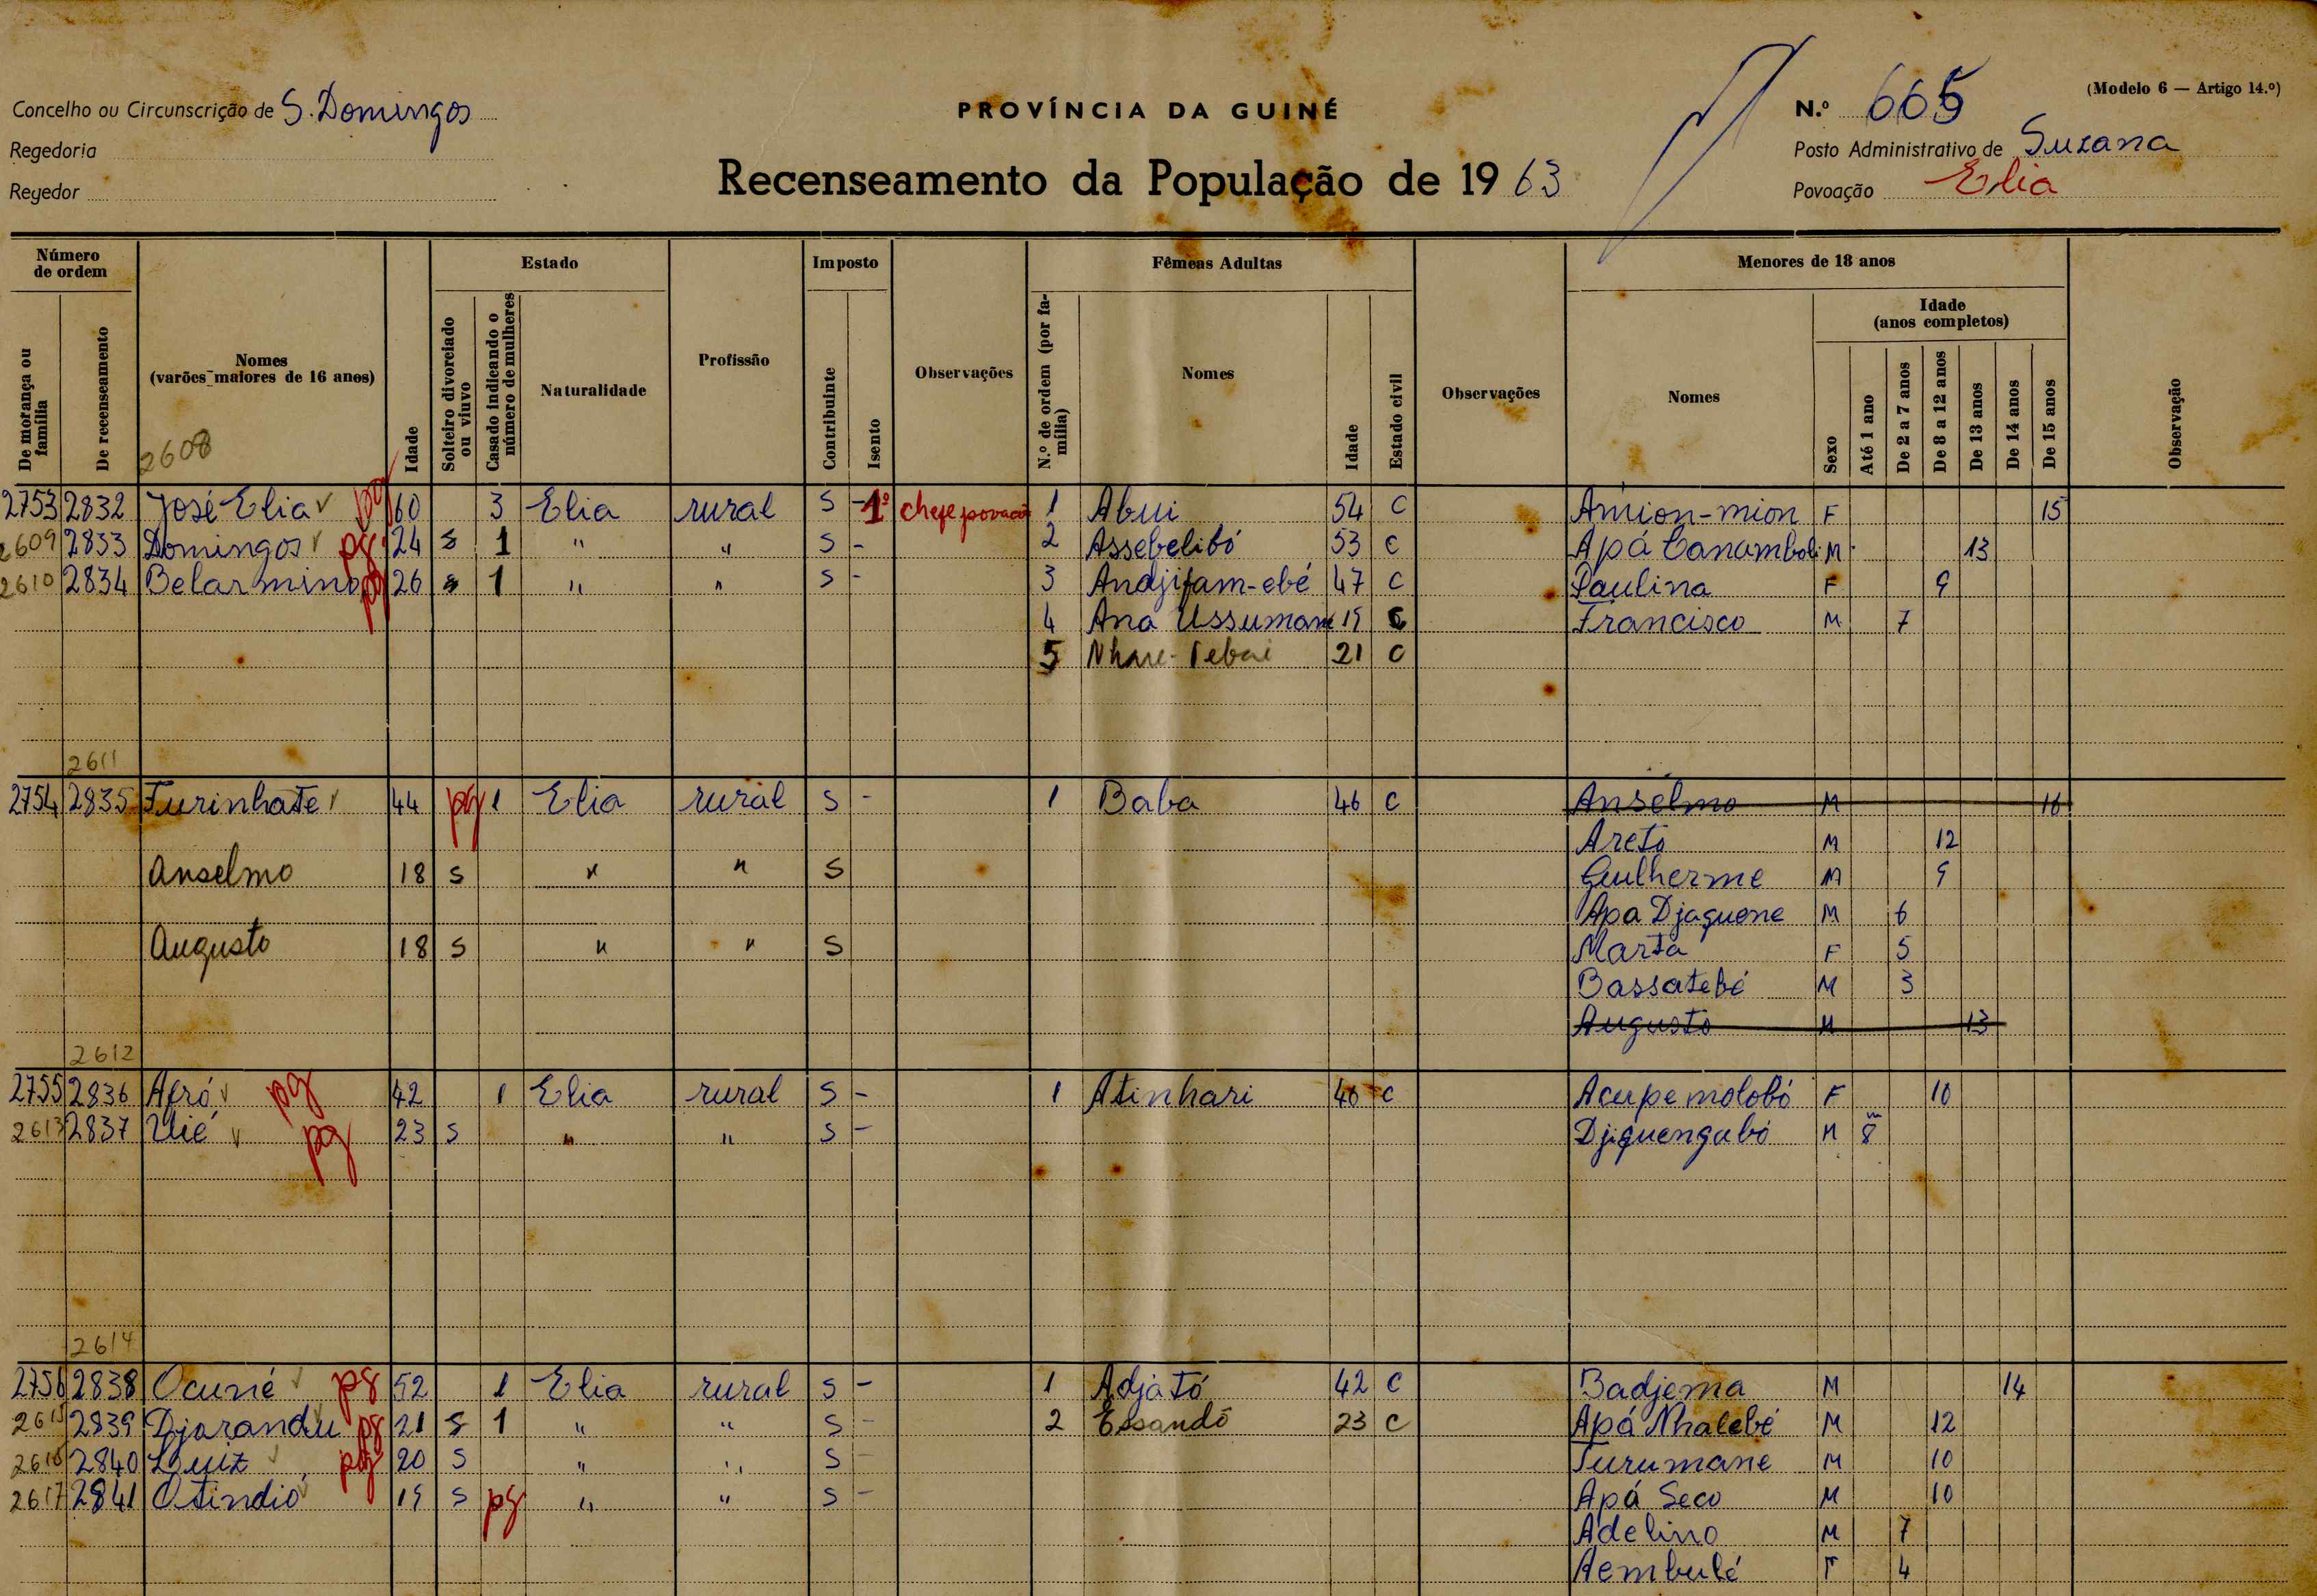 Concelho ou Circunscrição de S. Domingos
Regedoria
Regedor
PROVÍNCIA DA GUINÉ
Recenseamento da População de 19 63
(Modelo 6 — Artigo 14.º)
N.º 665
Posto Administrativo de Suzana
Povoação Elia
Número de ordem
Estado
Imposto
Fêmeas Adultas
Menores de 18 anos
De morança ou família
De recenseamento
Nomes (varões maiores de 16 anos)
Idade
Solteiro divorciado ou viuvo
Casado indicando o número de mulheres
Naturalidade
Profissão
Contribuinte
Isento
Observações
N.º de ordem (por família)
Nomes
Idade
Estado civil
Observações
Nomes
Sexo
Idade (anos completos)
Até 1 ano
De 2 a 7 anos
De 8 a 12 anos
De 13 anos
De 14 anos
De 15 anos
Observação
2608
2753 2832 José Elia pg 60 3 Elia rural S - 1º chefe povoação 1 Abui 54 C Amion-mion F 15
2609 2833 Domingos pg 24 S 1 " " S - 2 Assebelibó 53 C Apá Canamboli M 13
2610 2834 Belarmino pg 26 S 1 " " S - 3 Andjifam-ebé 47 C Paulina F 9
4 Ana Ussumane 19 C Francisco M 7
5 21 C
2611
2754 2835 Furinhate 44 pg 1 Elia rural S - 1 Baba 46 C Anselmo M 16
Areto M 12
Anselmo 18 S " " S Guilherme M 9
Apa Djaguene M 6
Augusto 18 S " " S Marta F 5
Bassatebé M 3
Augusto M 13
2612
2755 2836 Afró pg 42 1 Elia rural S - 1 Atinhari 40 C Acupemolobó F 10
2613 2837 Ulié pg 23 S " " S - Djiquengabó M 8 m
2614
2756 2838 Ocuné pg 52 1 Elia rural S - 1 Adjató 42 C Badjema M 14
2615 2839 Djarandu pg 21 S 1 " " S - 2 Essandó 23 C Apá Nhalebé M 12
2616 2840 Luiz pg 20 S " " S - Turumane M 10
2617 2841 Otindió 19 S pg " " S - Apá Seco M 10
Adelino M 7
Aembulé F 4